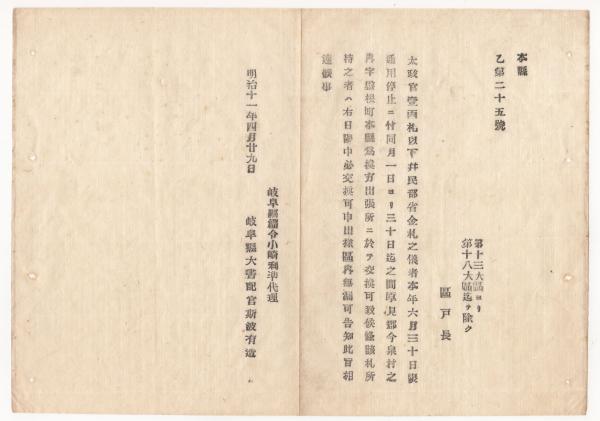 本縣
乙第二十五號
第十三大區ヨリ
第十八大區迄ヲ除ク
區戸長
太政官壹兩札以下并民部省金札之儀者本年六月三十日限
通用停止ニ付同月一日ヨリ三十日迄之間厚見郡今泉村之
内字鷹根町本縣為換方出張所ニ於テ交換可致候條該札所
持之者ハ右日限中必交換可申出様區内無漏可告知此旨相
達候事
明治十一年四月廿九日
岐阜縣權令小崎利準代理
岐阜縣大書記官斯波有造